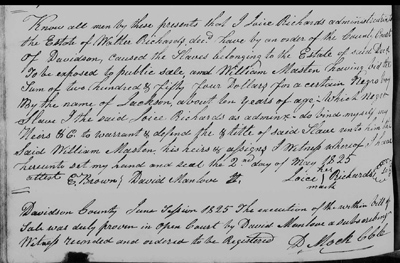 Know all men by these presents that I Loice Richards administratrix
the Estate of Walter Richards, decd have by an order of the County Court
Of Davidson, caused the Slaves belonging to the Estate of said Decd
To be exposed to public sale, and William Masten having bid the
Sum of two hundred & fifty four Dollars for a certain Negro boy
by the name of Jackson, about ten years of age: which Negro
Slave I the said Loice Richards as admix - do bind myself, my
Heirs &C to warrant & defend the title of said Slave unto him the
Said William Masten his heirs & assigns I Witness whereof I have
hereunto set my hand and seal the 2nd day of May 1825
attest E Brown, David Manlove Loice her mark Richards
Davidson County June Session 1825 The execution of the within bill of
Sale was duly proven in Open Court by David Manlove a subscribing
Witness recorded and ordered to be Registered D. Mock Clk